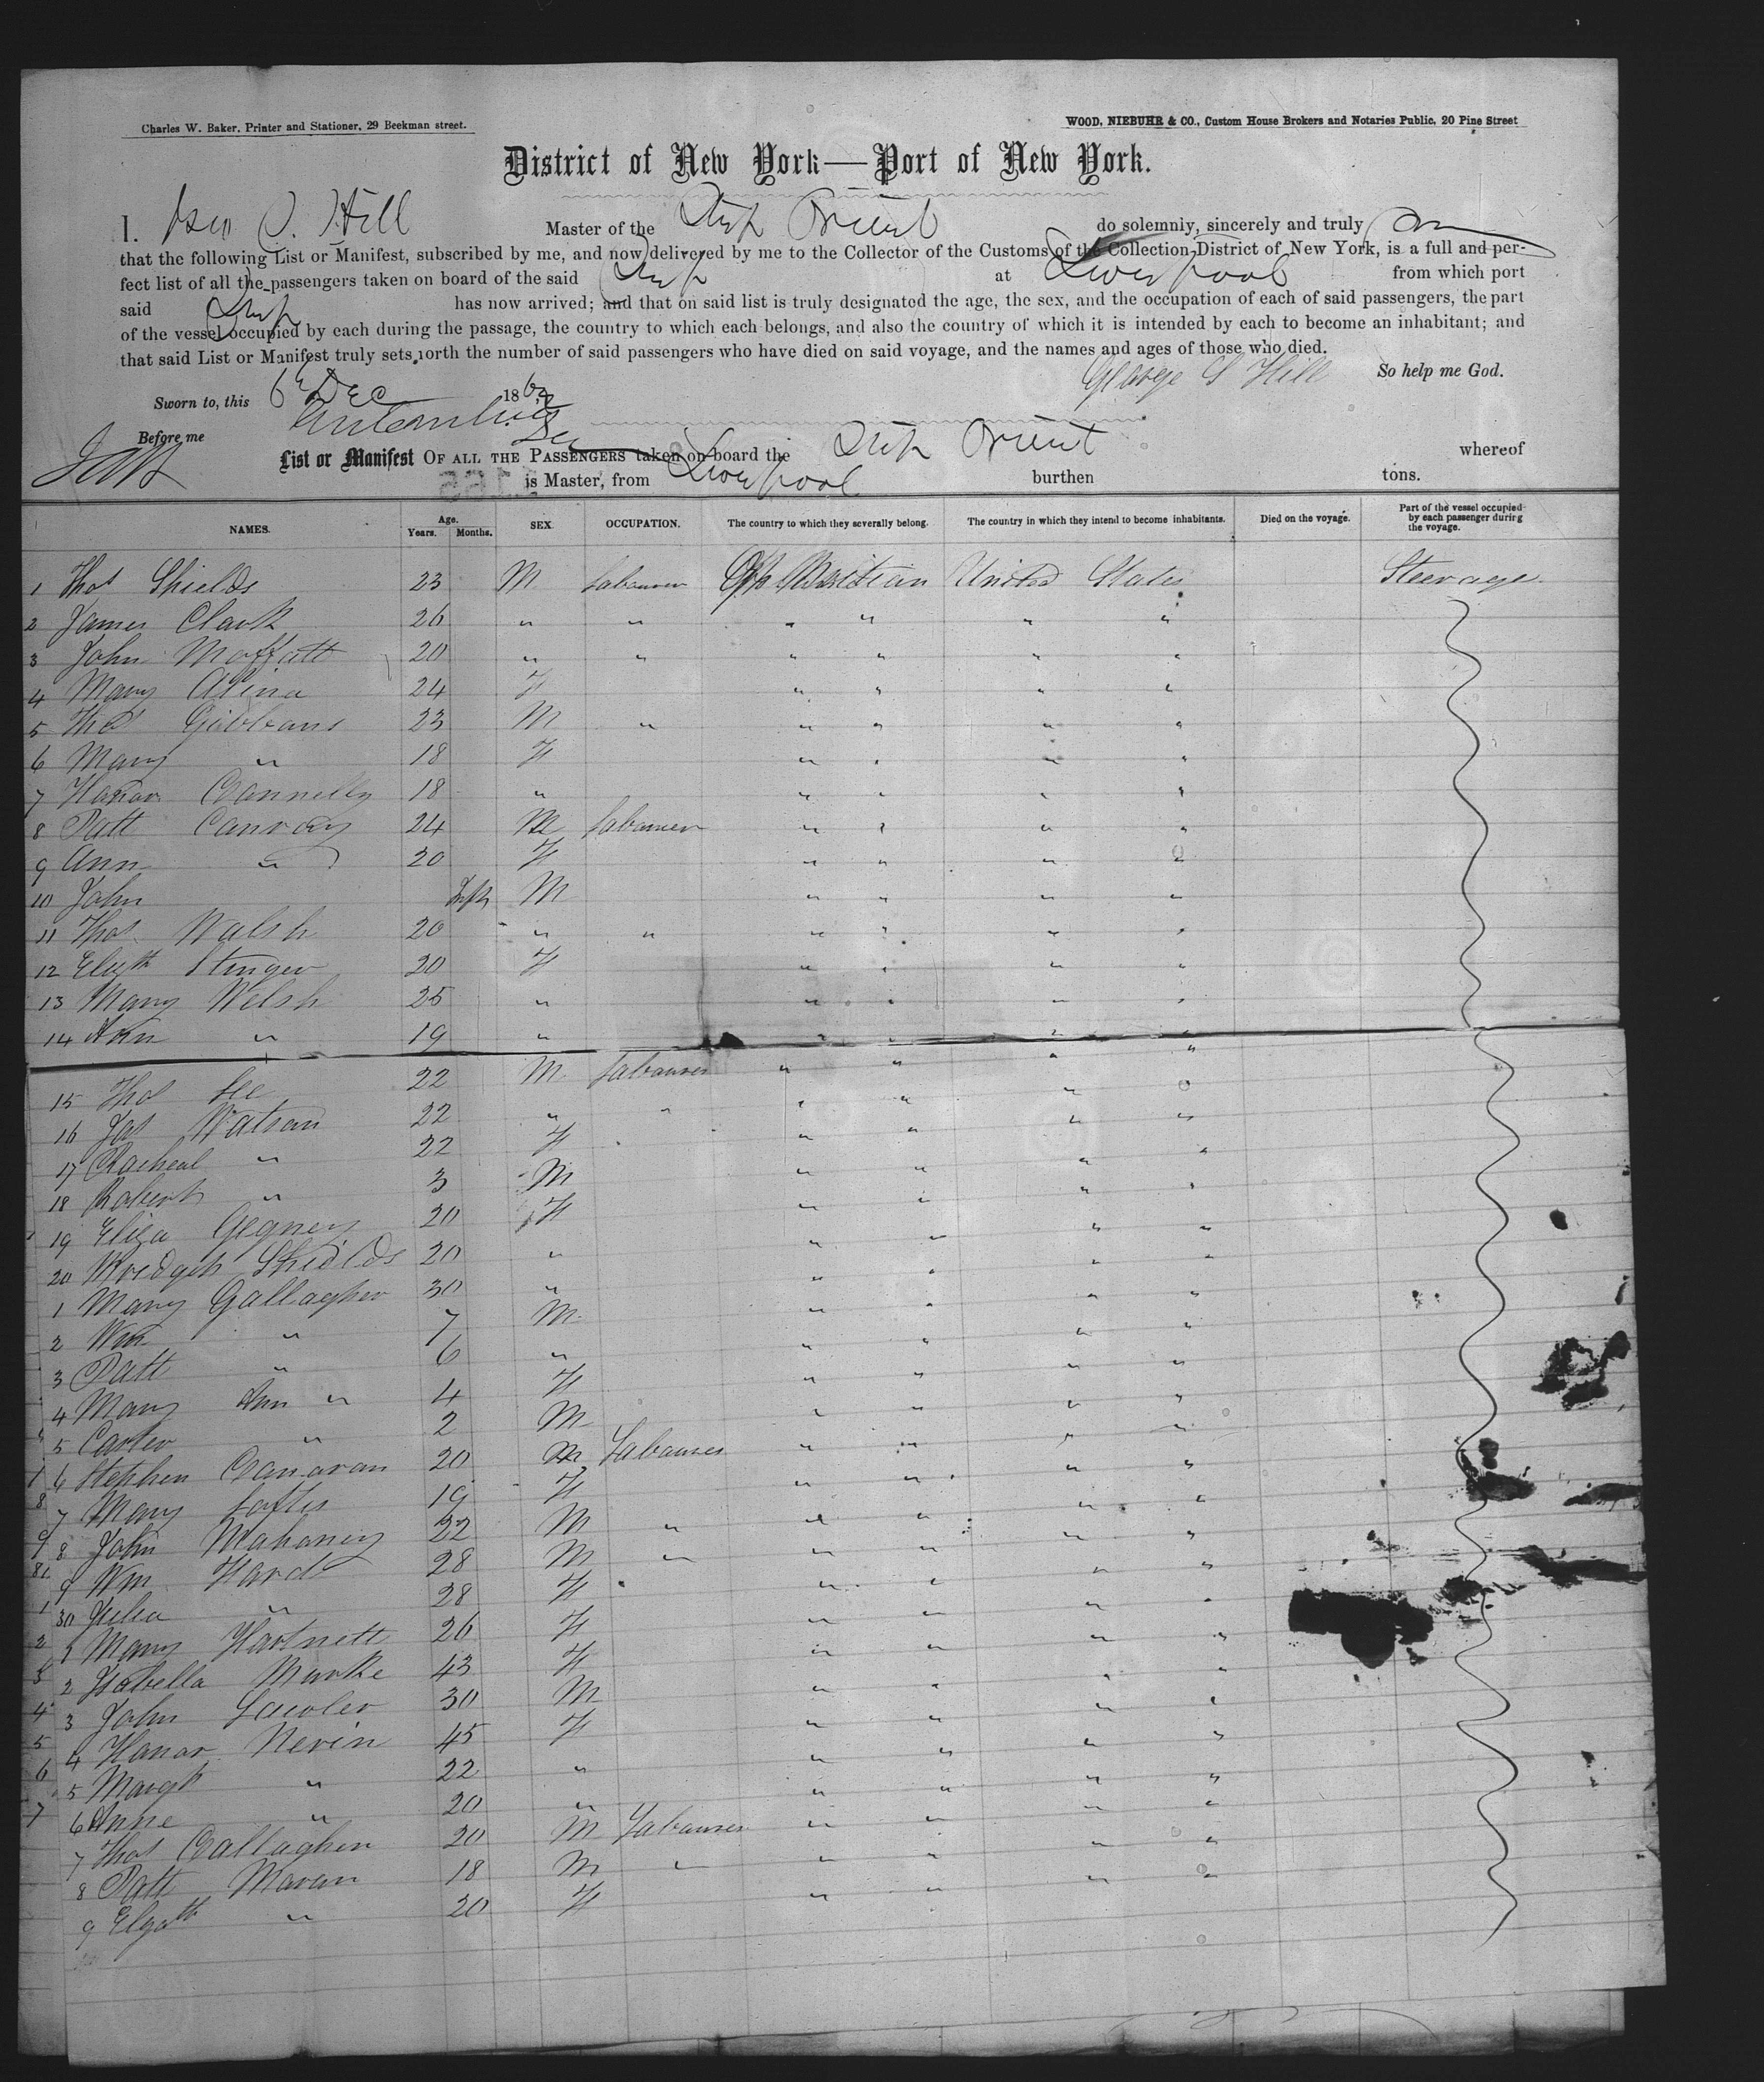 Charles W. Baker, Printer and Stationer, 29 Beekman street.
WOOD, NIEBUHR & CO., Custom House Brokers and Notaries Public, 20 Pine Street
District of New York—Port of New York.
I, Geo S. Hill Master of the Ship Orient do solemnly, sincerely and truly
that the following List or Manifest, subscribed by me, and now delivered by me to the Collector of the Customs of the Collection District of New York, is a full and per-
fect list of all the passengers taken on board of the said Ship at Liverpool from which port
said Ship has now arrived; and that on said list is truly designated the age, the sex, and the occupation of each of said passengers, the part
of the vessel occupied by each during the passage, the country to which each belongs, and also the country of which it is intended by each to become an inhabitant; and
that said List or Manifest truly sets forth the number of said passengers who have died on said voyage, and the names and ages of those who died.
George S Hill So help me God.
Sworn to, this 6 Dec 186
Before me
List or Manifest OF ALL THE PASSENGERS taken on board the Ship Orient whereof
is Master, from Liverpool burthen tons.
NAMES. Age. Years. Months. SEX. OCCUPATION. The country to which they severally belong. The country in which they intend to become inhabitants. Died on the voyage. Part of the vessel occupied by each passenger during the voyage.
1 Thos Shields 23 M Labourer United States Steerage
2 James Clark 26 " " " " " "
3 John Moffatt 20 " " " " " "
4 Mary 24 F " " " "
5 Thos Gibbons 23 M " " " " "
6 Mary " 18 F " " " "
7 Honor Connelly 18 " " " " "
8 Patt Conroy 24 M Labourer " " " "
9 Ann " 20 F " " " "
10 John Inft M " " " "
11 Thos Walsh 20 " " " " " "
12 Elizth Stinger 20 F " " " "
13 Mary Welsh 25 " " " " "
14 Ann " 19 " " " " "
15 Thos Lee 22 M Labourer " " " "
16 Jas Watson 22 " " " " " "
17 Racheal " 22 F " " " "
18 Robert " 3 M " " " "
19 Eliza 20 F " " " "
20 Shields 20 " " " " "
1 Mary Gallagher 30 " " " " "
2 Wm " 7 M " " " "
3 Patt " 6 " " " " "
4 Mary Ann " 4 F " " " "
5 " 2 M " " " "
6 Stephen Canavan 20 M Labourer " " " "
7 Mary Loftis 19 F " " " "
8 John Mahaney 22 M " " " " "
9 Wm Hard 28 M " " " " "
30 Julia " 28 F " " " "
1 Mary Hartnett 26 F " " " "
2 Isabella 43 F " " " "
3 John Lawler 30 M " " " "
4 Honor Nevin 45 F " " " "
5 Margt " 22 " " " " "
6 Anne " 20 " " " " "
7 Thos Callaghen 20 M Labourer " " " "
8 Patt Moran 18 M " " " " "
9 " 20 F " " " "